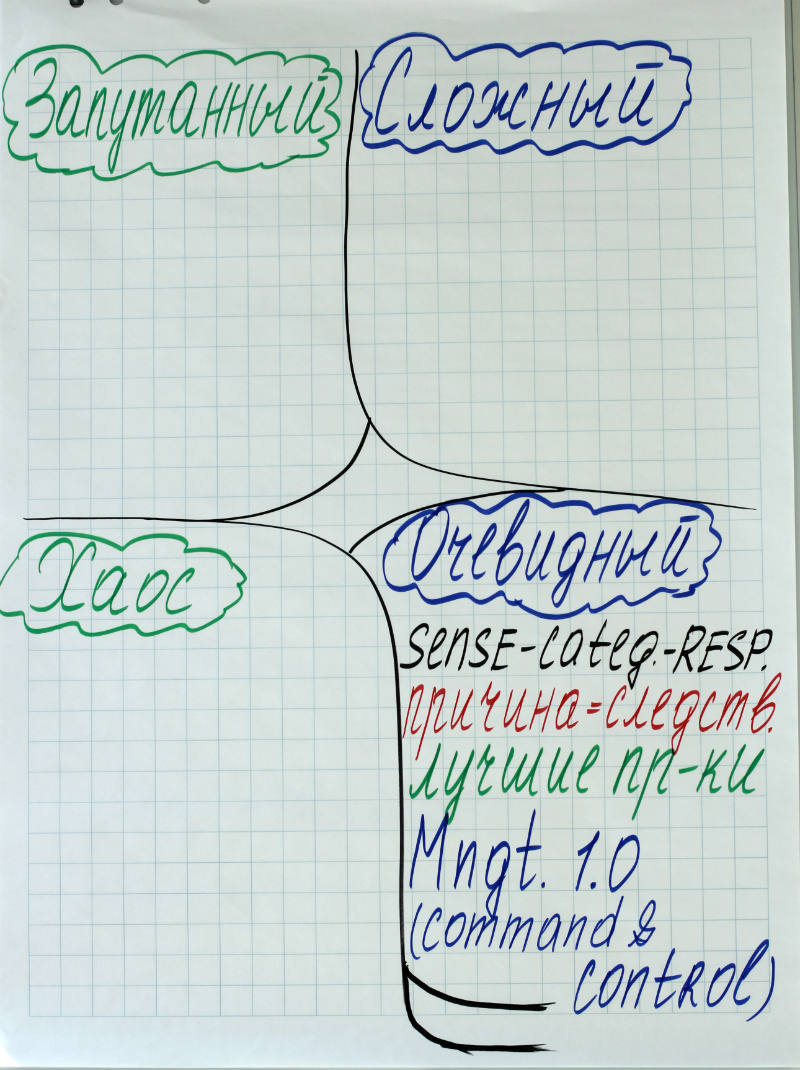 Запутанный
Сложный
Хаос
Очевидный
SENSE-categ.-RESP.
причина=следств.
лучшие пр-ки
Mngt. 1.0
(command &
control)